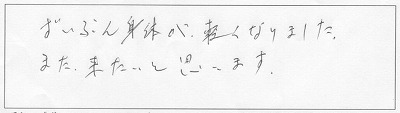 ずいぶん身体が、軽くなりました。
また、来たいと思います。